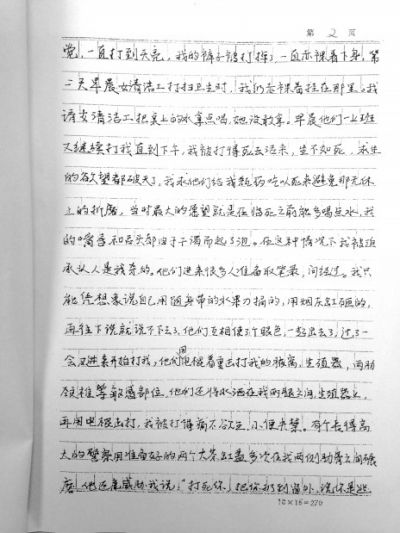 第 2 页
觉，一直打到天亮，我的裤子被打掉了，一直赤裸着下身，第
二天早晨女清洁工打扫卫生时，我仍赤裸着挂在那里。我
请女清洁工把桌上的水拿点喝，她没敢拿。早晨他们一上班
又继续打我直到下午，我被打得死去活来，生不如死，求生
的欲望都破灭了，我求他们给我颗药吃以死来避免那无休
止的折磨，当时最大的愿望就是在临死之前能多喝点水，我
的嘴唇和舌头都由于干渴而起了泡。在这种情况下我被迫
承认人是我杀的。他们进来很多人准备取笔录，问经过。我只
能凭想象说自己用随身带的水果刀捅的，用烟灰缸砸的，
再往下说就说不下去了，他们互相使了个眼色，一起出去了，过了一
会又进来开始打我，他们用电棍着重击打我的裤裆，生殖器，两肋
颈椎等敏感部位，他们还将水洒在我两腿之间，生殖器上，
再用电棍击打，我被打得痛不欲生，小便失禁。有个长得高
大的警察用准备好的两个大茶缸盖多次在我两侧肋骨之间碾
磨，他还威胁我说：“打死你，把你扔到窗外，说你是逃
18×15=270